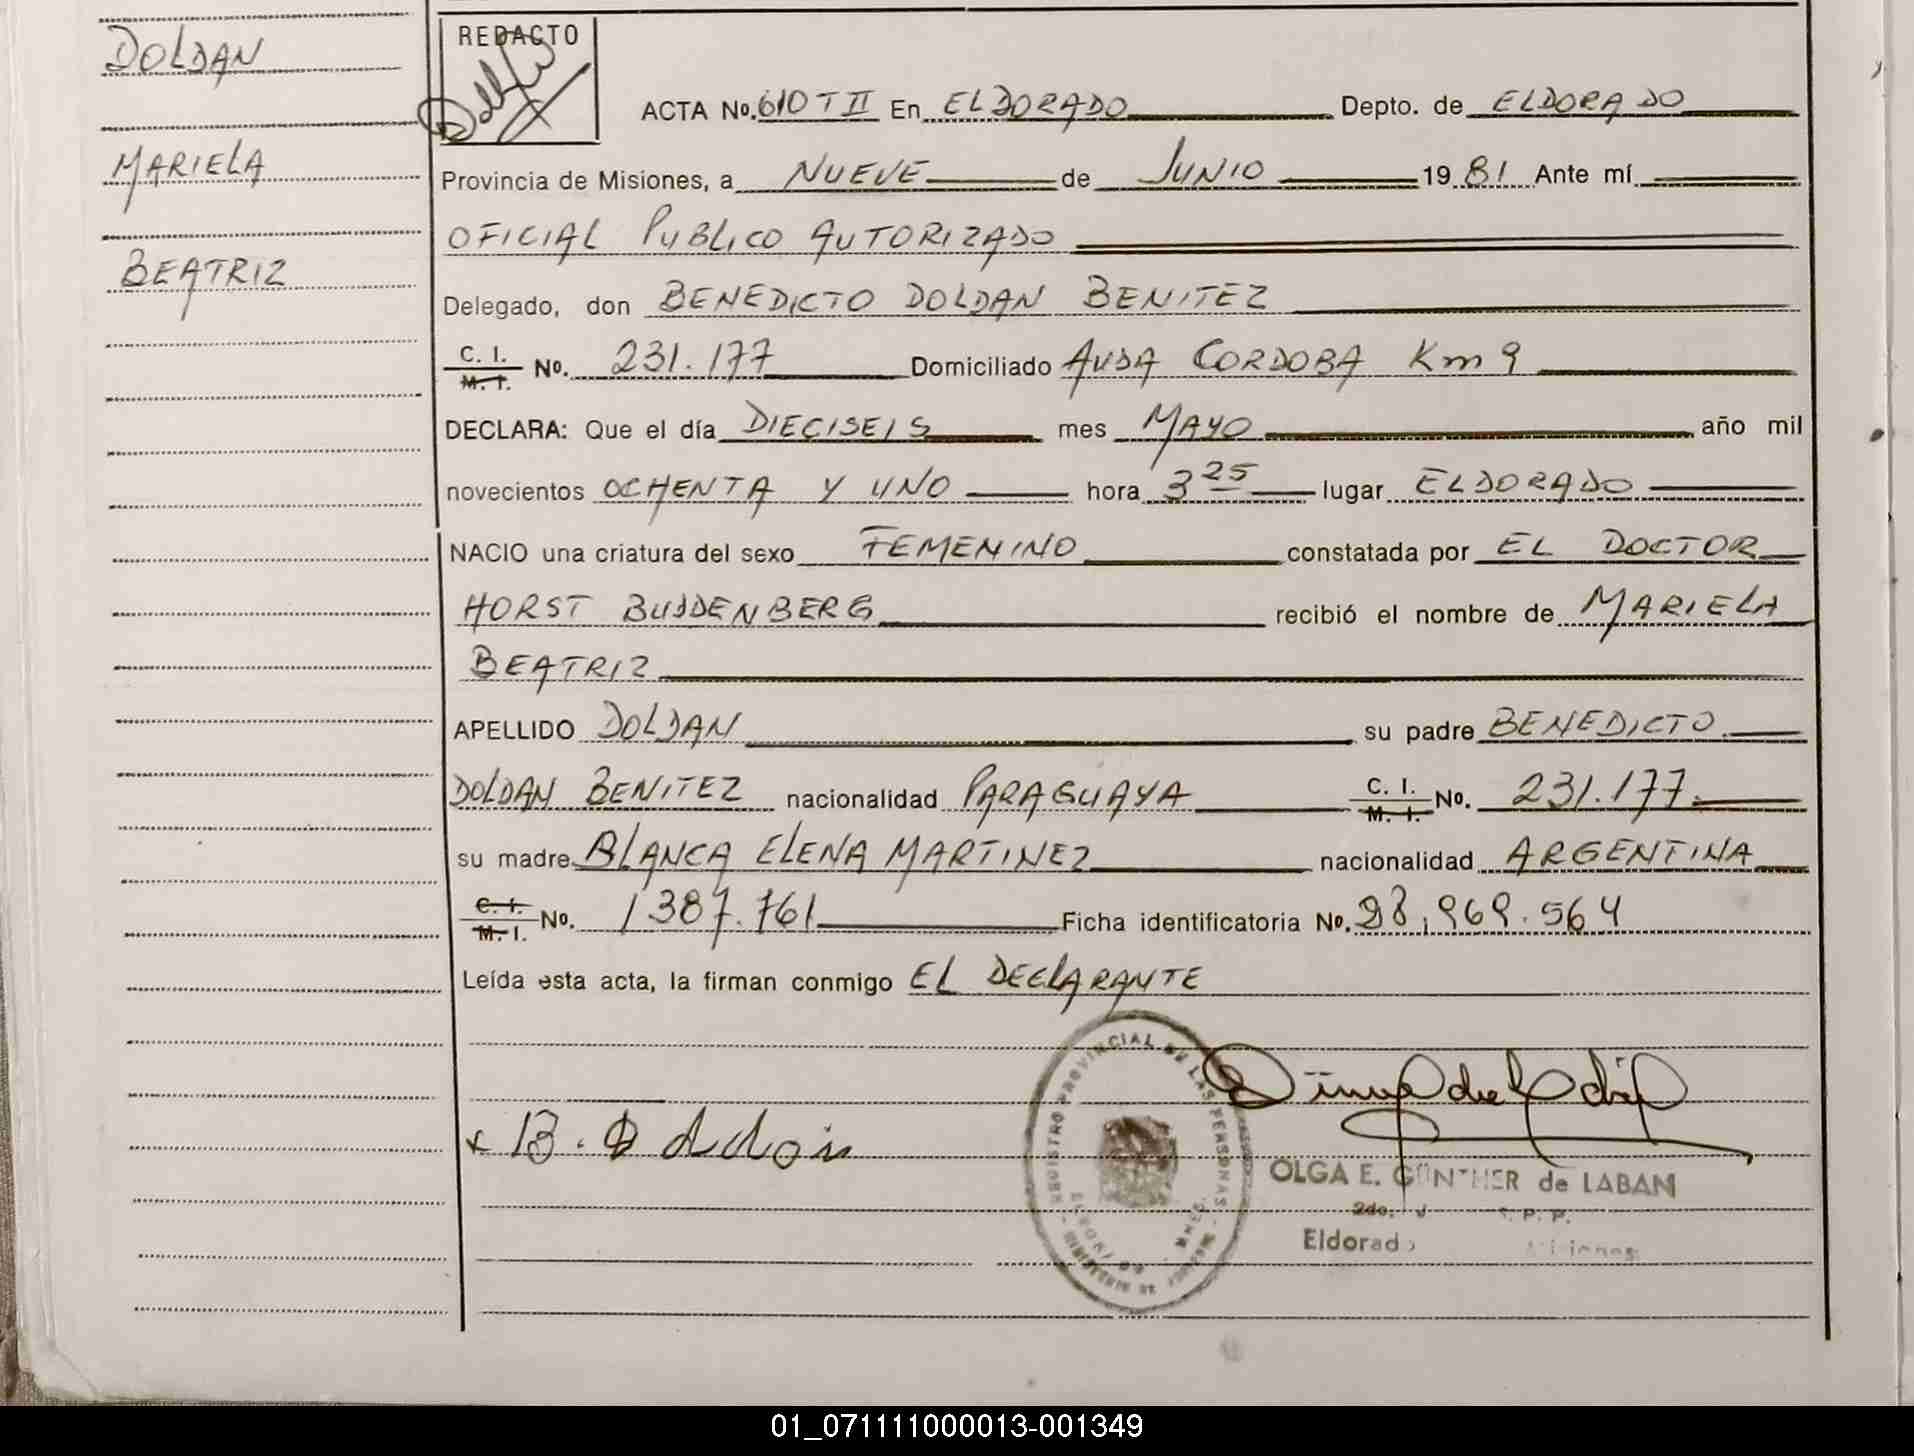 DOLDAN
MARIELA
BEATRIZ
REDACTO
ACTA No. 610 T II En ELDORADO Depto. de ELDORADO
Provincia de Misiones, a NUEVE de JUNIO 1981 Ante mí
OFICIAL PUBLICO AUTORIZADO
Delegado, don BENEDICTO DOLDAN BENITEZ
C. I. M. I. No. 231.177 Domiciliado AVDA CORDOBA Km 9
DECLARA: Que el día DIECISEIS mes MAYO año mil
novecientos OCHENTA Y UNO hora 3 25 lugar ELDORADO
NACIO una criatura del sexo FEMENINO constatada por EL DOCTOR
HORST BUDDENBERG recibió el nombre de MARIELA
BEATRIZ
APELLIDO DOLDAN su padre BENEDICTO
DOLDAN BENITEZ nacionalidad PARAGUAYA C. I. M. I. No. 231.177.
su madre BLANCA ELENA MARTINEZ nacionalidad ARGENTINA
C. I. M. I. No. 1387.761 Ficha identificatoria No. 28,969.564
Leída esta acta, la firman conmigo EL DECLARANTE
REGISTRO PROVINCIAL DE LAS PERSONAS
OLGA E. GÜNTHER de LABAN
Eldorado Misiones
01_071111000013-001349